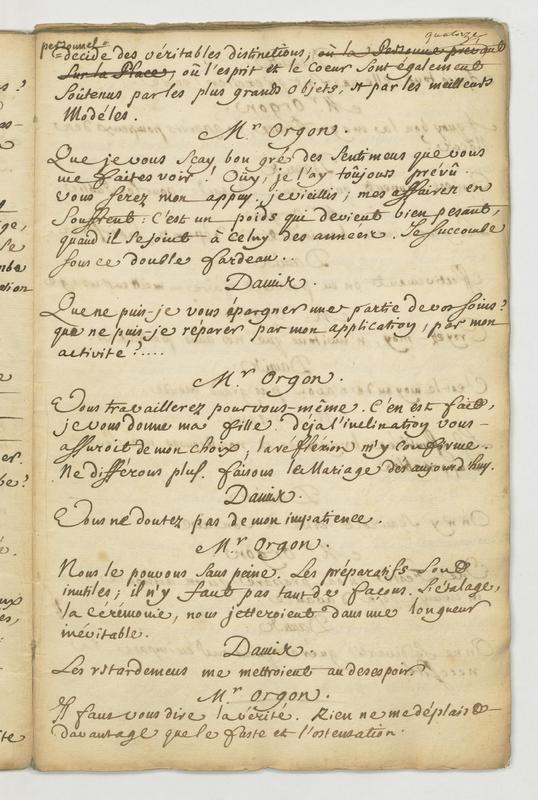 quatorze
personnel
decide des véritables distinctions, où la Personne prevaut
Sur la Place, où l'esprit et le Coeur Sont également
Soûtenus par les plus grands objets, et par les meilleurs
Modéles.
Mr. Orgon.
Que je vous Sçay bon gré des Sentimens que vous
me faites voir! Oüy, je l'ay toûjours prévû.
Vous Serez mon appuy. je vieillis; mes affaires en
Souffrent: C'est un poids qui devient bien pesant,
quand il Se joint à Celuy des années. Je Succombe
Sous ce double fardeau.
Damis.
Que ne puis-je vous épargner une partie de vos Soins?
que ne puis-je réparer par mon application, par mon
activité?....
Mr. Orgon.
Vous travaillerez pour vous-même. C'en est fait,
je vous donne ma fille. déja l'inclination vous
assuroit de mon choix; la reflexion m'y Confirme.
Ne differons plus. faisons le Mariage dès aujourd'huy.
Damis.
Vous ne doutez pas de mon impatience.
Mr. Orgon.
Nous le pouvons Sans peine. Les préparatifs Sont
inutiles; il n'y faut pas tant de façons. L'étalage,
la cérémonie, nous jetteroient dans une longueur
inévitable.
Damis.
Les retardemens me mettroient au desespoir.
Mr. Orgon.
Il faut vous dire la vérité. Rien ne me déplaist
davantage que le faste et l'ostentation.